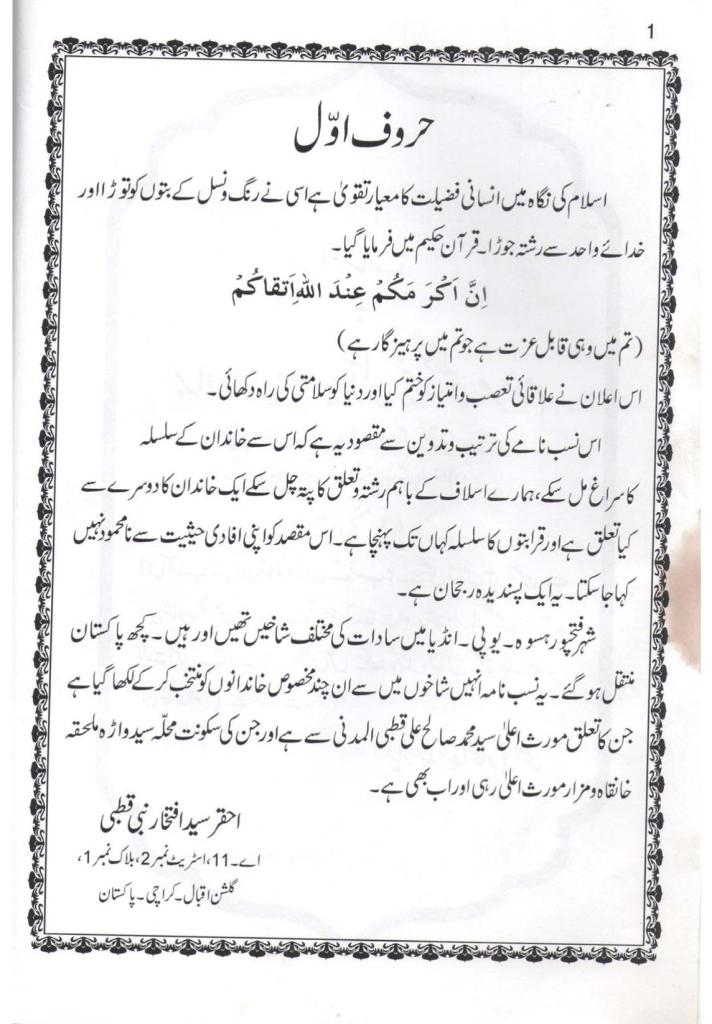 1
حروف اوّل
اسلام کی نگاہ میں انسانی فضیلت کا معیار تقویٰ ہے اسی نے رنگ و نسل کے بتوں کو توڑا اور
خدائے واحد سے رشتہ جوڑا۔ قرآن حکیم میں فرمایا گیا۔
اِنَّ اَکْرَ مَکُمْ عِنْدَ اللّٰہِ اَتقاکُمْ
(تم میں وہی قابل عزت ہے جو تم میں پرہیزگار ہے)
اس اعلان نے علاقائی تعصب و امتیاز کو ختم کیا اور دنیا کو سلامتی کی راہ دکھائی۔
اس نسب نامے کی ترتیب و تدوین سے مقصود یہ ہے کہ اس سے خاندان کے سلسلہ
کا سراغ مل سکے، ہمارے اسلاف کے باہم رشتہ و تعلق کا پتہ چل سکے ایک خاندان کا دوسرے سے
کیا تعلق ہے اور قرابتوں کا سلسلہ کہاں تک پہنچا ہے۔ اس مقصد کو اپنی افادی حیثیت سے نامحمود نہیں
کہا جا سکتا۔ یہ ایک پسندیدہ رجحان ہے۔
شہر فتحپور ہسوہ۔ یو پی۔ انڈیا میں سادات کی مختلف شاخیں تھیں اور ہیں۔ کچھ پاکستان
منتقل ہو گئے۔ یہ نسب نامہ انہیں شاخوں میں سے ان چند مخصوص خاندانوں کو منتخب کر کے لکھا گیا ہے
جن کا تعلق مورث اعلیٰ سید محمد صالح علی قطبی المدنی سے ہے اور جن کی سکونت محلّہ سید واڑہ ملحقہ
خانقاہ و مزار مورث اعلیٰ رہی اور اب بھی ہے۔
احقر سید افتخار نبی قطبی
اے۔11، اسٹریٹ نمبر 2، بلاک نمبر 1،
گلشن اقبال۔ کراچی۔ پاکستان